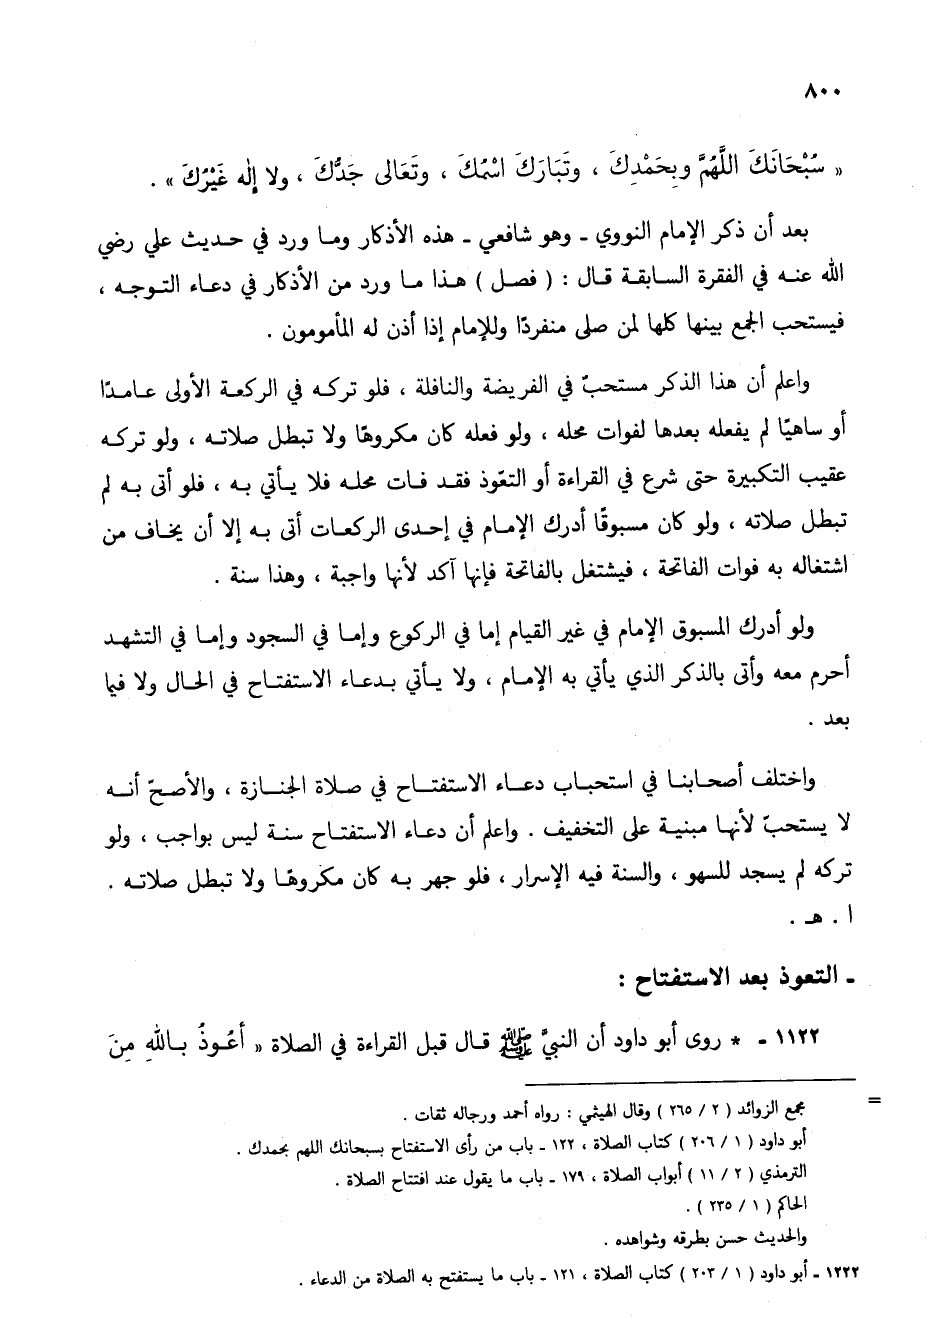 ٨٠٠
« سُبْحَانَكَ اللَّهُمَّ وبِحَمْدِكَ ، وتَبَارَكَ اسْمُكَ ، وتَعَالى جَدُّكَ ، ولا إلٰه غَيْرُكَ » .
بعد أن ذكر الإمام النووي ـ وهو شافعي ـ هذه الأذكار وما ورد في حديث علي رضي
الله عنه في الفقرة السابقة قال : ( فصل ) هذا ما ورد من الأذكار في دعاء التوجه ،
فيستحب الجمع بينها كلها لمن صلى منفردًا وللإمام إذا أذن له المأمومون .
واعلم أن هذا الذكر مستحبّ في الفريضة والنافلة ، فلو تركه في الركعة الأولى عامدًا
أو ساهيًا لم يفعله بعدها لفوات محله ، ولو فعله كان مكروهًا ولا تبطل صلاته ، ولو تركه
عقيب التكبيرة حتى شرع في القراءة أو التعّوذ فقد فات محله فلا يأتي به ، فلو أتى به لم
تبطل صلاته ، ولو كان مسبوقًا أدرك الإمام في إحدى الركعات أتى به إلا أن يخاف من
اشتغاله به فوات الفاتحة ، فيشتغل بالفاتحة فإنها آكد لأنها واجبة ، وهذا سنة .
ولو أدرك المسبوق الإمام في غير القيام إما في الركوع وإما في السجود وإما في التشهد
أحرم معه وأتى بالذكر الذي يأتي به الإمام ، ولا يأتي بدعاء الاستفتاح في الحال ولا فيما
بعد .
واختلف أصحابنا في استحباب دعاء الاستفتاح في صلاة الجنازة ، والأصحّ أنه
لا يستحبّ لأنها مبنية على التخفيف . واعلم أن دعاء الاستفتاح سنة ليس بواجب ، ولو
تركه لم يسجد للسهو ، والسنة فيه الإسرار ، فلو جهر به كان مكروهًا ولا تبطل صلاته .
ا . هـ .
ـ التعوذ بعد الاستفتاح :
١١٢٢ ـ * روى أبو داود أن النبيَّ ﷺ قال قبل القراءة في الصلاة « أعُوذُ باللهِ مِنَ
=
مجمع الزوائد ( ٢ / ٢٦٥ ) وقال الهيثمي : رواه أحمد ورجاله ثقات .
أبو داود ( ١ / ٢٠٦ ) كتاب الصلاة ، ١٢٢ ـ باب من رأى الاستفتاح بسبحانك اللهم بحمدك .
الترمذي ( ٢ / ١١ ) أبواب الصلاة ، ١٧٩ ـ باب ما يقول عند افتتاح الصلاة .
الحاكم ( ١ / ٢٣٥ ) .
والحديث حسن بطرقه وشواهده .
١٢٢٢ ـ أبو داود ( ١ / ٢٠٣ ) كتاب الصلاة ، ١٢١ ـ باب ما يستفتح به الصلاة من الدعاء .